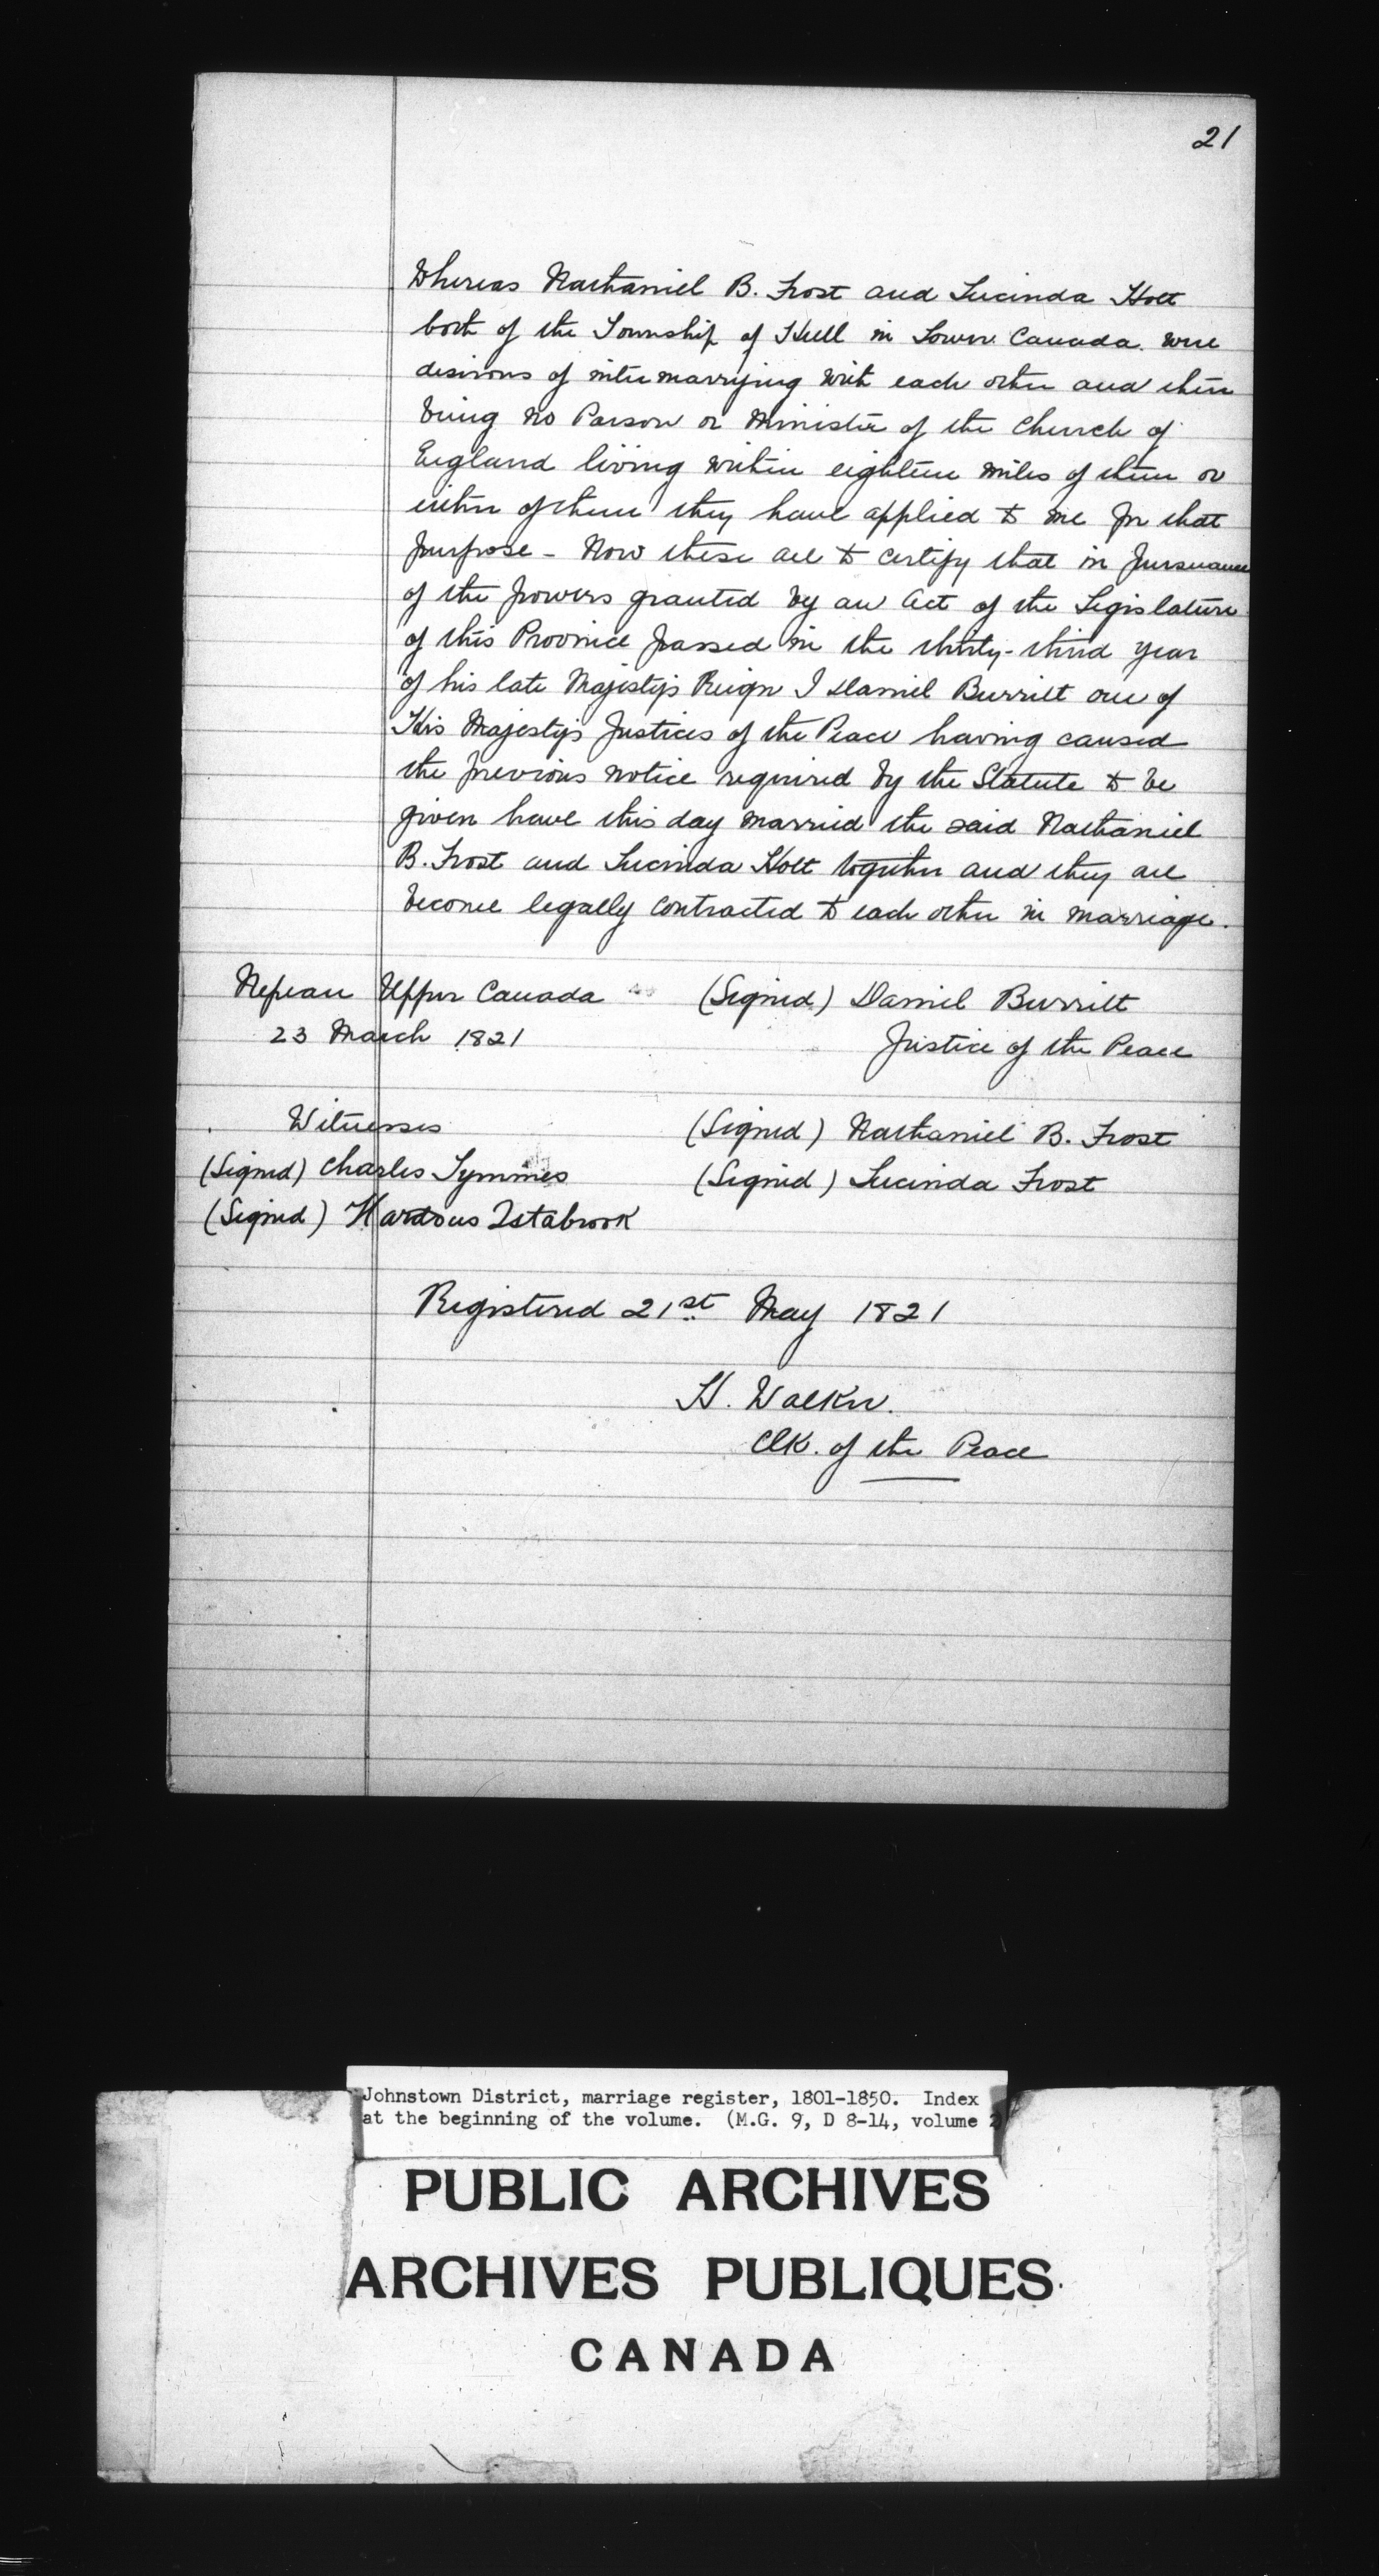 21
Whereas Nathaniel B. Frost and Lucinda Holt
both of the Township of Hull in Lower Canada were
desirous of intermarrying with each other and there
being no Parson or Minister of the Church of
England living within eighteen miles of them or
either of them they have applied to me for that
purpose - Now these are to certify that in pursuance
of the powers granted by an Act of the Legislature
of this Province passed in the thirty-third year
of his late Majesty's Reign I Daniel Burritt one of
His Majesty's Justices of the Peace having caused
the previous notice required by the Statute to be
given have this day married the said Nathaniel
B. Frost and Lucinda Holt together and they are
become legally contracted to each other in marriage.
Nepean Upper Canada (Signed) Daniel Burritt
23 March 1821 Justice of the Peace
Witnesses (Signed) Nathaniel B. Frost
(Signed) Charles Symmes (Signed) Lucinda Frost
(Signed) Estabrook
Registered 21st May 1821
H. Walker.
Clk. of the Peace
Johnstown District, marriage register, 1801-1850. Index
at the beginning of the volume. (M.G. 9, D 8-14, volume 2)
PUBLIC ARCHIVES
ARCHIVES PUBLIQUES
CANADA